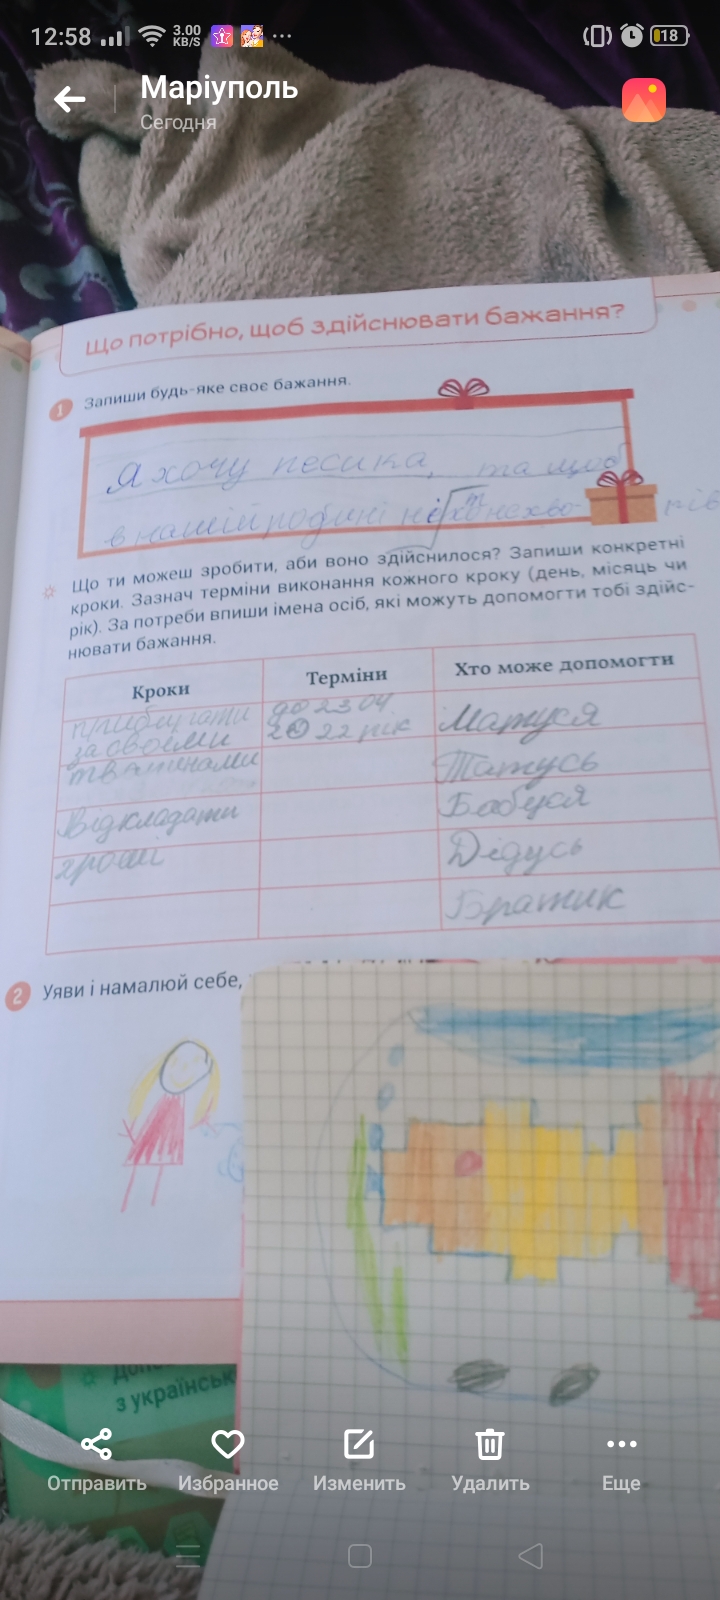 12:58
3.00
KB/S
18
Маріуполь
Сегодня
Що потрібно, щоб здійснювати бажання?
1 Запиши будь-яке своє бажання.
Я хочу песика, та щоб
в нашій родині ніхто не хво-
рів
Що ти можеш зробити, аби воно здійснилося? Запиши конкретні
кроки. Зазнач терміни виконання кожного кроку (день, місяць чи
рік). За потреби впиши імена осіб, які можуть допомогти тобі здійс-
нювати бажання.
Кроки Терміни Хто може допомогти
прибирати до 23 04. Матуся
за своїми 2022 рік
тваринами Татусь
Відкладати Бабуся
гроші Дідусь
Братик
2 Уяви і намалюй себе,
з українськ
Отправить Избранное Изменить Удалить Еще